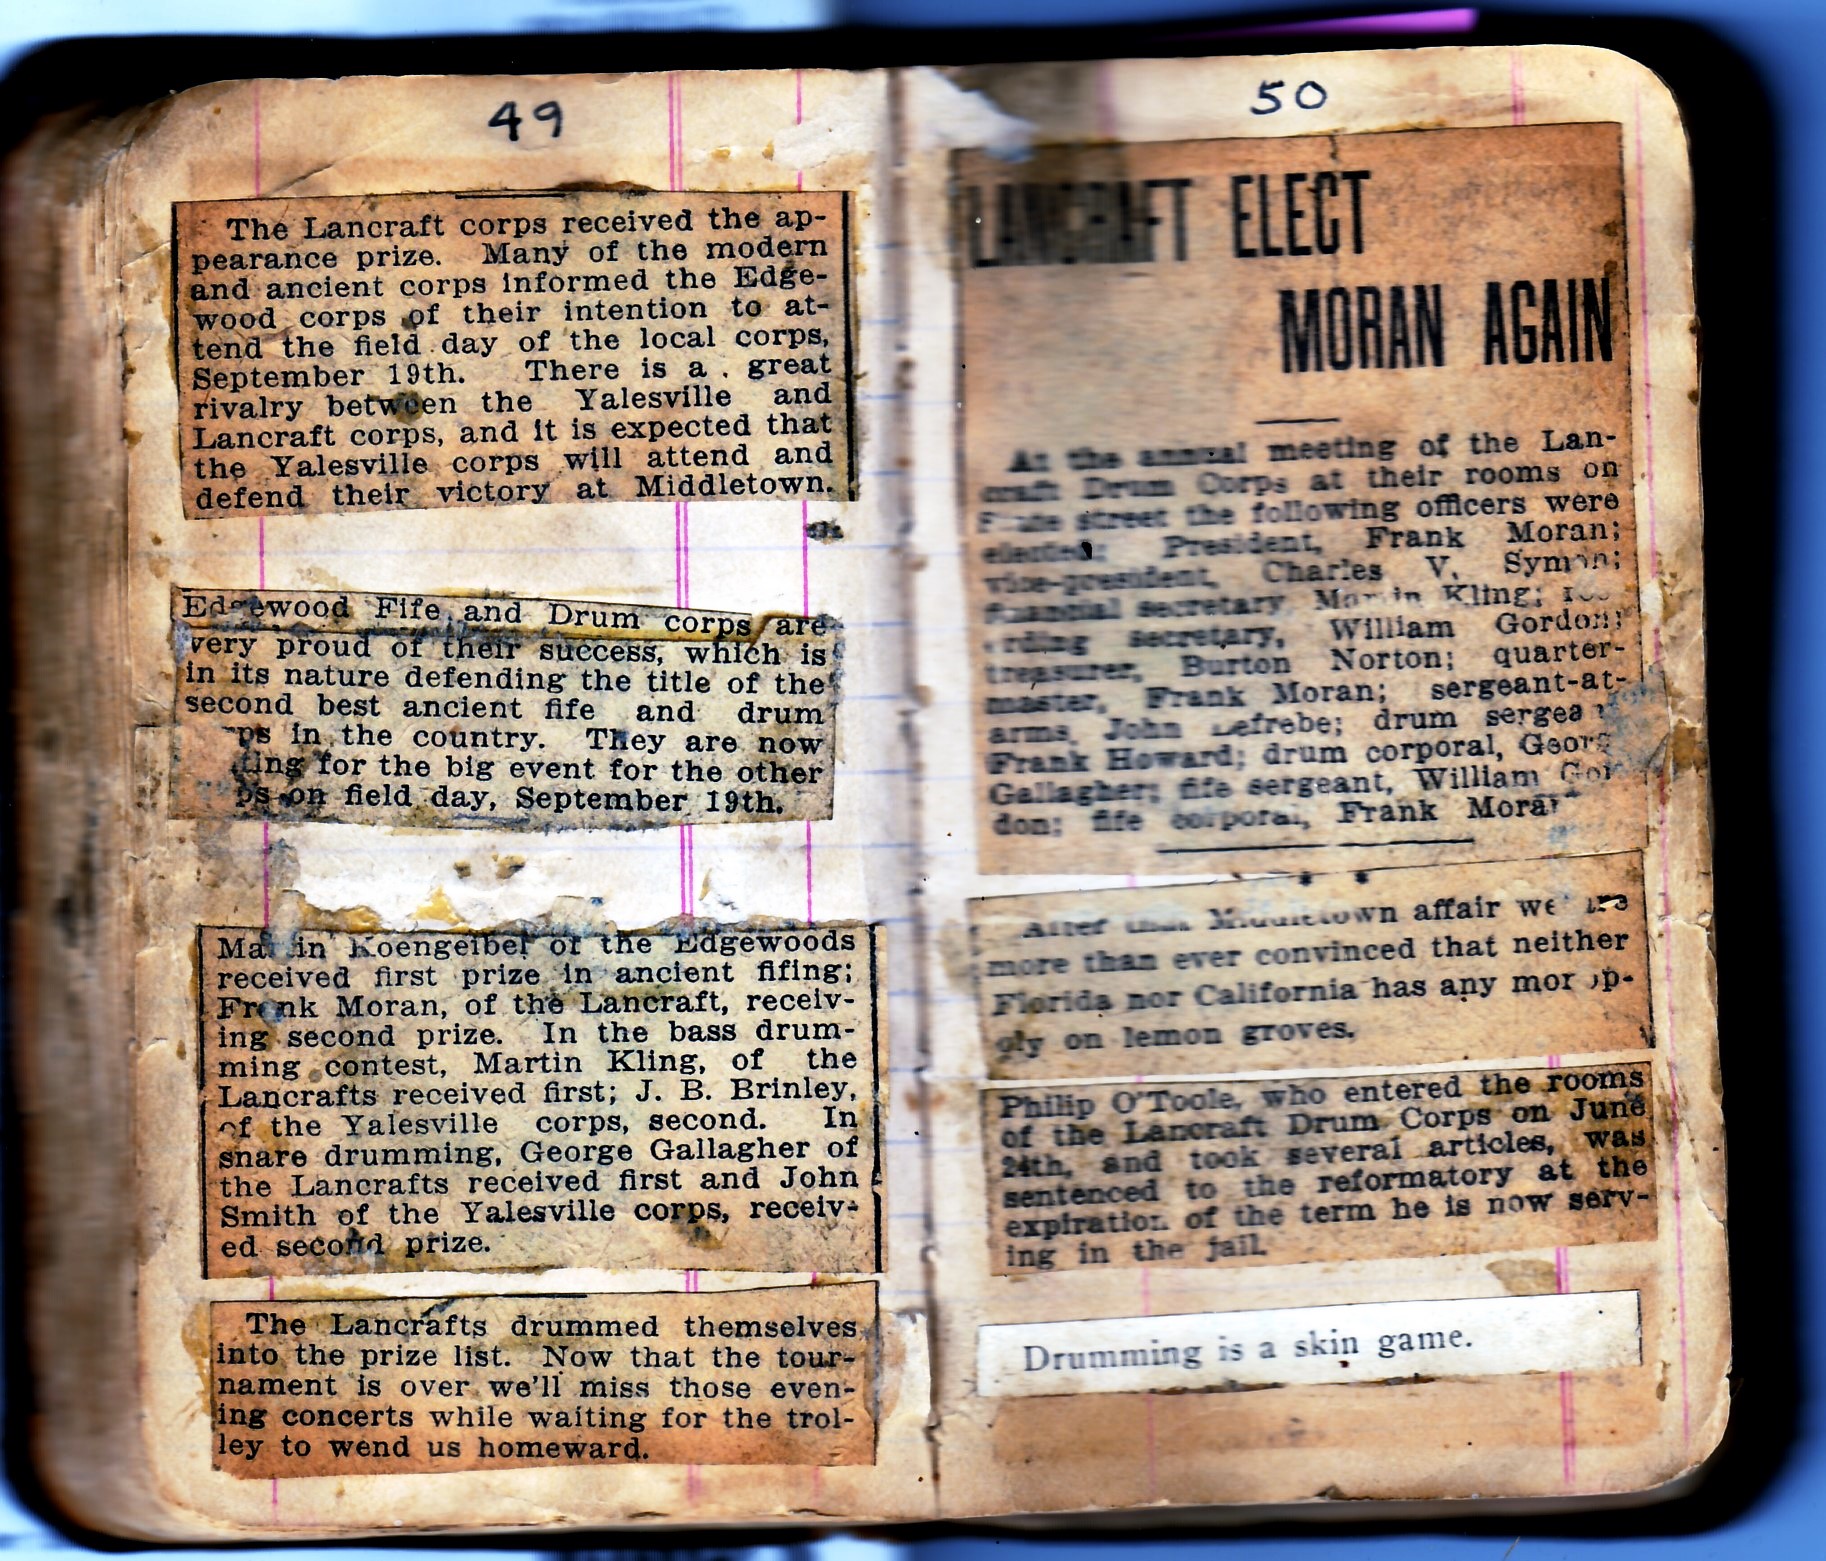 49
The Lancraft corps received the ap-
pearance prize. Many of the modern
and ancient corps informed the Edge-
wood corps of their intention to at-
tend the field day of the local corps,
September 19th. There is a great
rivalry between the Yalesville and
Lancraft corps, and it is expected that
the Yalesville corps will attend and
defend their victory at Middletown.
Edgewood Fife and Drum corps are
very proud of their success, which is
in its nature defending the title of the
second best ancient fife and drum
ps in the country. They are now
ting for the big event for the other
ps on field day, September 19th.
Martin Koengeibel of the Edgewoods
received first prize in ancient fifing;
Frank Moran, of the Lancraft, receiv-
ing second prize. In the bass drum-
ming contest, Martin Kling, of the
Lancrafts received first; J. B. Brinley,
of the Yalesville corps, second. In
snare drumming, George Gallagher of
the Lancrafts received first and John
Smith of the Yalesville corps, receiv-
ed second prize.
The Lancrafts drummed themselves
into the prize list. Now that the tour-
nament is over we'll miss those even-
ing concerts while waiting for the trol-
ley to wend us homeward.
50
LANCRAFT ELECT
MORAN AGAIN
At the annual meeting of the Lan-
craft Drum Corps at their rooms on
State street the following officers were
elected: President, Frank Moran;
vice-president, Charles V. Symon;
financial secretary Martin Kling; rec
ording secretary, William Gordon;
treasurer, Burton Norton; quarter-
master, Frank Moran; sergeant-at-
arms, John Lefrebe; drum sergeant
Frank Howard; drum corporal, George
Gallagher; fife sergeant, William Gor
don; fife corporal, Frank Moran
After that Middletown affair we are
more than ever convinced that neither
Florida nor California has any mop-
oly on lemon groves.
Philip O'Toole, who entered the rooms
of the Lancraft Drum Corps on June
24th, and took several articles, was
sentenced to the reformatory at the
expiration of the term he is now serv-
ing in the jail.
Drumming is a skin game.